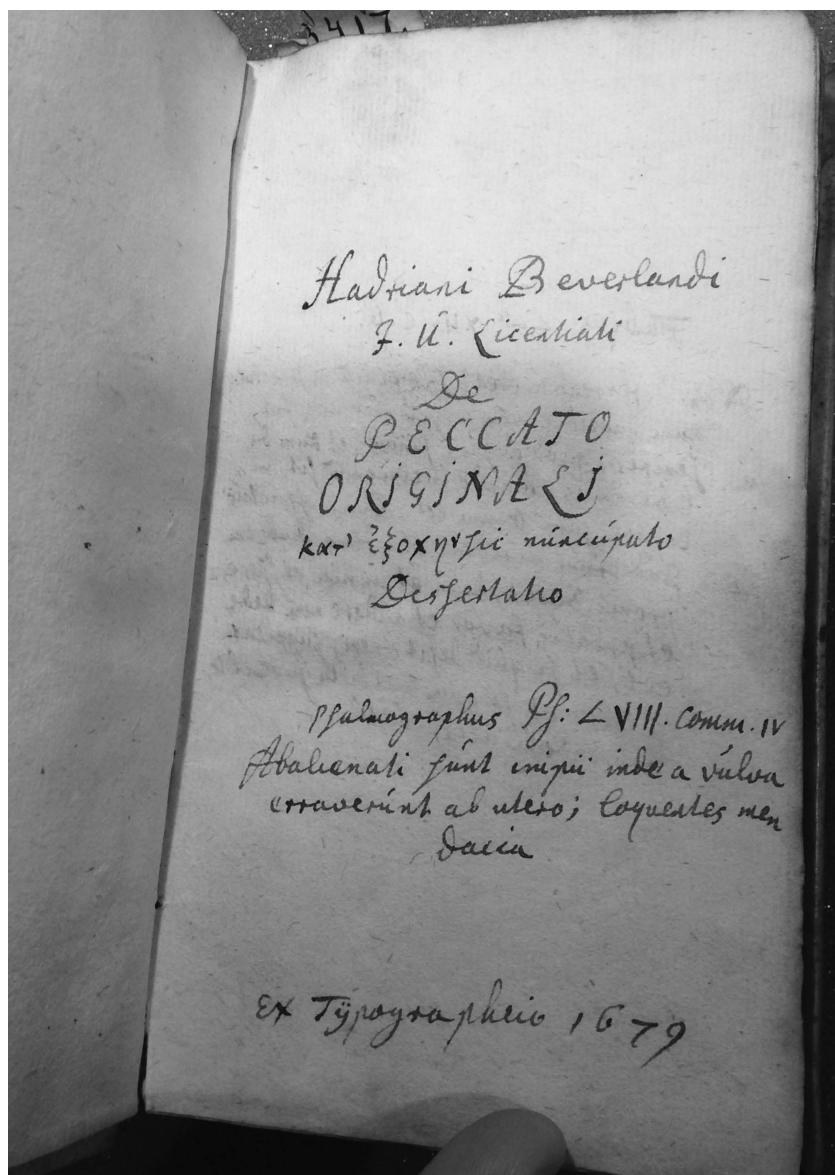 3417.
Hadriani Beverlandi
J. U. Licentiati
De
PECCATO
ORIGINALI
κατ' ἐξοχην sic nuncupato
Dessertatio
Psalmographus Ps: LVIII. Comm. IV
Abalienati sunt impii inde a vulva
erraverunt ab utero; loquentes men
dacia
Ex Typographeio 1679